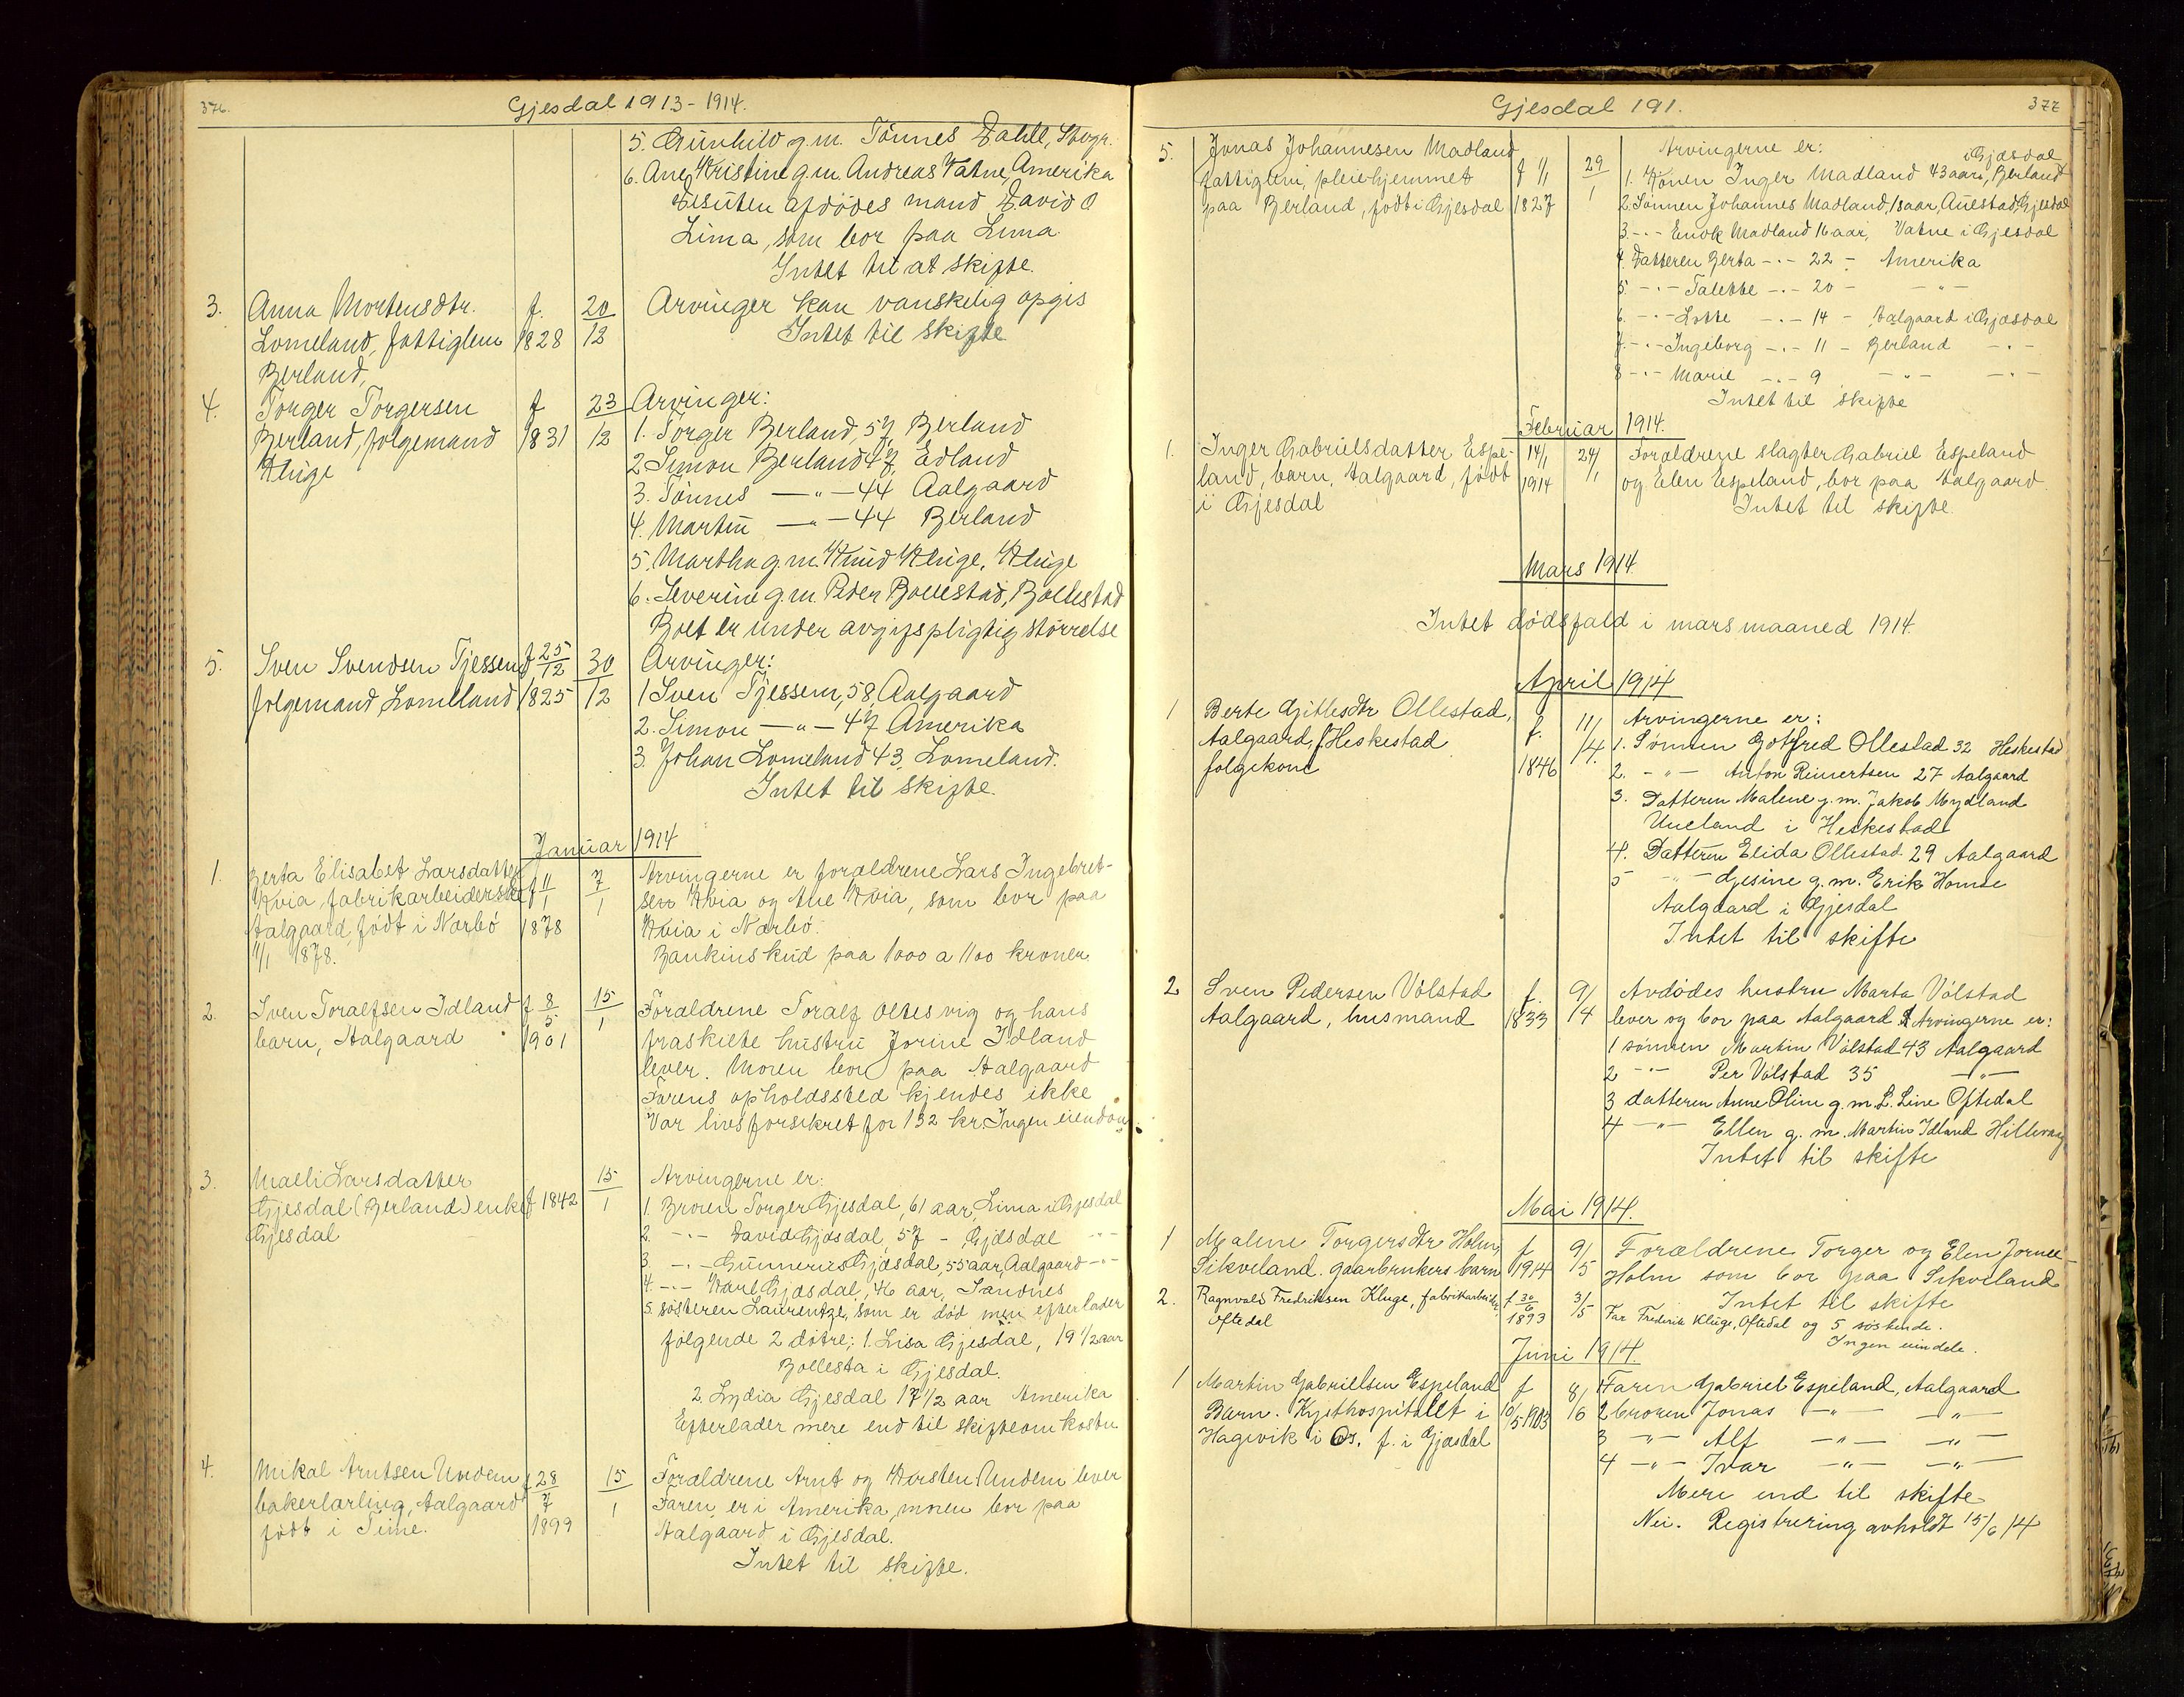 376.
Gjesdal 1913-1914.
5. Gunhild g.m. Tönnes Dahle,
6. Ane Kristine g.m. Andreas Vatne, Amerika
Desuten afdödes mand David O
Lima, som bor paa Lima.
Intet til at skifte.
3. Anna Mortensdtr. f. 20 Arvinger kan vanskelig opgis
Lomeland, fattiglem 1828 12 Intet til skifte
Berland,
4. Torger Torgersen f 23 Arvinger:
Berland, folgemand 1831 12 1. Torger Berland, 57, Berland
Kluge 2. Simon Berland 47, Edland
3. Tönnes —"— 44 Aalgaard
4. Martin —"— 44 Berland
5. Martha g.m. Knud Kluge, Kluge
6. Severine g.m. Peder Bollestad, Bollestad
Boet er under avgifspligtig störrelse
5. Sven Svendsen Tjessem f 25/12 30 Arvinger:
folgemand Lomeland 1825 12 1 Sven Tjessem, 58, Aalgaard
2. Simon —"— 47 Amerika
3. Johan Lomeland 43, Lomeland.
Intet til skifte.
Januar 1914
1. Berta Elisabet Larsdatter f 11 7 Arvingerne er foraldrene Lars Ingebret-
Kvia, fabrikarbeiderske 1 1 sen Kvia og Ane Kvia, som bor paa
Aalgaard, födt i Narbö 1878 Kvia i Narbö.
11/1 1878. Bankinskud paa 1000 a 1100 kroner.
2. Sven Toralfsen Idland f 8 15 Foraldrene Toralf Oltesvig og hans
barn, Aalgaard 5 1 fraskilte hustru Jorine Idland
1901 lever. Moren bor paa Aalgaard
Farens opholdssted kjendes ikke
Var livsforsikret for 132 kr. Ingen eiendom.
3. Malli Larsdatter 15 Arvingerne er:
Gjesdal (Berland) enke f 1842 1 1. Broren Torger Gjesdal, 61 aar, Lima i Gjesdal
Gjesdal 2. -"- David Gjesdal, 57 - Gjesdal -"-
3. -"- Gunnerius Gjesdal, 55 aar, Aalgaard -"-
4. -"- Karl Gjesdal, 46 aar, Sandnes
5. sösteren Laurentze, som er död men efterlader
følgende 2 dötre,: 1. Lisa Gjesdal, 19 1/2 aar
Bollesta i Gjesdal.
2. Lydia Gjesdal 17 1/2 aar Amerika
Efterlader mere end til skifteomkostn
4. Mikal Arntsen Undem f 28 15 Foraldrene Arnt og Karsten Undem lever
bakerlarling, Aalgaard 7 1 Faren er i Amerika, moren bor paa
födt i Time. 1899 Aalgaard i Gjesdal.
Intet til skifte.
Gjesdal 191.
377
5. Jonas Johannesen Madland f 1/1 29 Arvingerne er:
fattiglem, pleiehjemmet 1827 1 1. Konen Inger Madland 43 aar, Berland i Gjesdal
paa Berland, födt i Gjesdal 2. Sönnen Johannes Madland, 18 aar, Auestad, Gjesdal
3 -"- Enok Madland 16 aar, Vatne i Gjesdal
4. Datteren Berta -"- 22 - Amerika
5. -"- Talette -"- 20 - -"-
6. -"- Lotte -"- 14 - Aalgaard i Gjesdal
7. -"- Ingeborg -"- 11 - Berland -"-
8 -"- Marie -"- 9 -"- -"-
Intet til skifte
Februar 1914.
1. Inger Gabrielsdatter Espe- 14/1 24/ Foraldrene slagter Gabriel Espeland
land, barn, Aalgaard, födt 1914 1 og Elen Espeland, bor paa Aalgaard
i Gjesdal Intet til skifte.
Mars 1914.
Intet dödsfald i mars maaned 1914.
April 1914
1 Berte Gitlesdtr Ollestad, f. 11/ Arvingerne er:
Aalgaard, f Heskestad 1846 4. 1. Sønnen Gotfred Ollestad 32 Heskestad
folgekone 2. -"- Anton Reinertsen 27 Aalgaard
3. Datteren Malene g.m. Jakob Mydland
Ueland i Heskestad
4. Datteren Elida Ollestad 29 Aalgaard
5 -"- Gjesine g.m. Erik Homse
Aalgaard i Gjesdal
Intet til skifte
2 Sven Pedersen Vølstad f. 9/ Avdødes hustru Marta Vølstad
Aalgaard, husmand 1833 4 lever og bor paa Aalgaard. Arvingerne er:
1 sønnen Martin Vølstad 43 Aalgaard
2 -"- Per Vølstad 35 —"—
3 datteren Anne Oline g.m. L. Line Oftedal
4 —"— Ellen g.m. Martin Idland Hillevag
Intet til skifte
Mai 1914.
1 Malene Torgersdtr Holm, f 9/ Forældrene Torger og Elen Jornee
Sikveland. gaarbrukers barn 1914 5 Holm som bor paa Sikveland
Intet til skifte
2. Ragnvald Fredriksen Kluge, fabrikarbeider f 30/6 3/5 Far Fredrik Kluge, Oftedal og 5 søskende.
Oftedal 1893 Ingen eiendele.
Juni 1914.
1 Martin Gabrielsen Espeland f 8/ 1 Faren Gabriel Espeland, Aalgaard
Barn. Kysthospitalet i 10/5 1903 6 2 broren Jonas —"— —"—
Hagevik i Os. f. i Gjesdal 3 —"— Alf —"— —"—
4 —"— Ivar —"— —"—
Mere end til skifte
Nei. Registrering avholdt 15/6 14